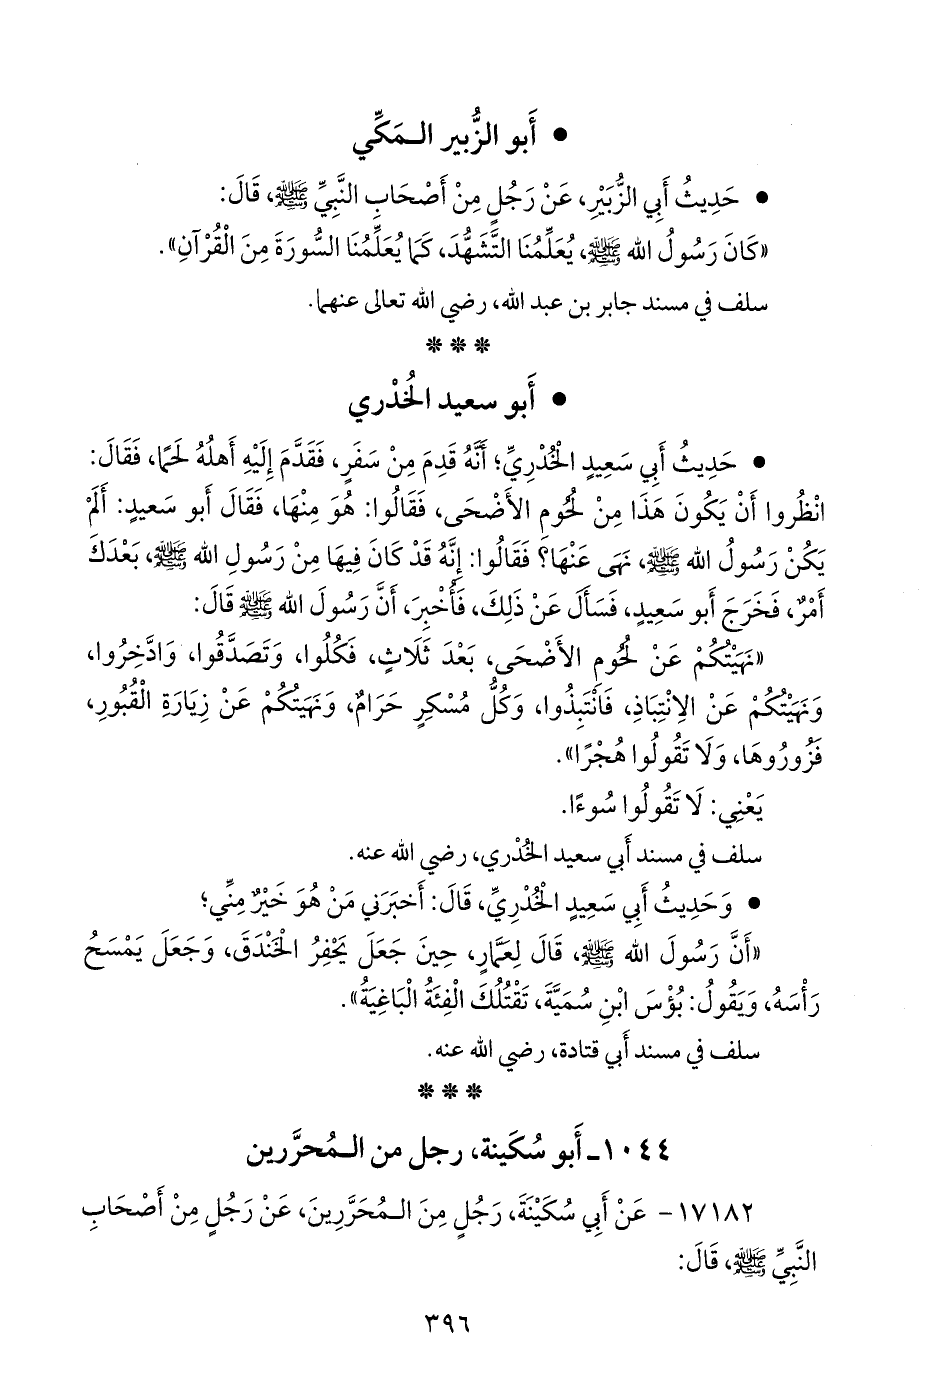 • أَبو الزُّبير الـمَكِّي
• حَدِيثُ أَبِي الزُّبَيْرِ، عَنْ رَجُلٍ مِنْ أَصْحَابِ النَّبِيِّ ﷺ، قَالَ:
«كَانَ رَسُولُ الله ﷺ، يُعَلِّمُنَا التَّشَهُّدَ، كَمَا يُعَلِّمُنَا السُّورَةَ مِنَ الْقُرْآنِ».
سلف في مسند جابر بن عبد الله، رضي الله تعالى عنهما.
* * *
• أَبو سعيد الخُدْري
• حَدِيثُ أَبِي سَعِيدٍ الْخُدْرِيِّ؛ أَنَّهُ قَدِمَ مِنْ سَفَرٍ، فَقَدَّمَ إِلَيْهِ أَهلُهُ لَحمًا، فَقَالَ:
انْظُروا أَنْ يَكُونَ هَذَا مِنْ لحُومِ الأَضْحَى، فَقَالُوا: هُوَ مِنْهَا، فَقَالَ أَبو سَعيدٍ: أَلَمْ
يَكُنْ رَسُولُ الله ﷺ، نَهَى عَنْهَا؟ فَقَالُوا: إِنَّهُ قَدْ كَانَ فِيهَا مِنْ رَسُولِ الله ﷺ، بَعْدَكَ
أَمْرٌ، فَخَرَجَ أَبو سَعِيدٍ، فَسَأَلَ عَنْ ذَلِكَ، فَأُخْبِرَ، أَنَّ رَسُولَ الله ﷺ قَالَ:
«نَهَيْتُكُمْ عَنْ لحُومِ الأَضْحَى، بَعْدَ ثَلَاثٍ، فَكُلُوا، وَتَصَدَّقُوا، وَادَّخِرُوا،
وَنَهَيْتُكُمْ عَنْ الِانْتِبَاذِ، فَانْتَبِذُوا، وَكُلُّ مُسْكِرٍ حَرَامٌ، وَنَهَيتُكُمْ عَنْ زِيَارَةِ الْقُبُورِ،
فَزُورُوهَا، وَلَا تَقُولُوا هُجْرًا».
يَعْنِي: لَا تَقُولُوا سُوءًا.
سلف في مسند أَبي سعيد الخُدْري، رضي الله عنه.
• وَحَدِيثُ أَبِي سَعِيدٍ الْخُدْرِيِّ، قَالَ: أَخبَرَني مَنْ هُوَ خَيْرٌ مِنِّي؛
«أَنَّ رَسُولَ الله ﷺ، قَالَ لِعَمَّارٍ، حِينَ جَعَلَ يَحْفِرُ الْخَنْدَقَ، وَجَعَلَ يَمْسَحُ
رَأْسَهُ، وَيَقُولُ: بُؤْسَ ابْنِ سُمَيَّةَ، تَقْتُلُكَ الْفِئَةُ الْبَاغِيَةُ».
سلف في مسند أَبي قتادة، رضي الله عنه.
* * *
١٠٤٤ - أَبو سُكَينة، رجل من الـمُحرَّرين
١٧١٨٢ - عَنْ أَبِي سُكَيْنَةَ، رَجُلٍ مِنَ الـمُحَرَّرِينَ، عَنْ رَجُلٍ مِنْ أَصْحَابِ
النَّبِيِّ ﷺ، قَالَ:
٣٩٦